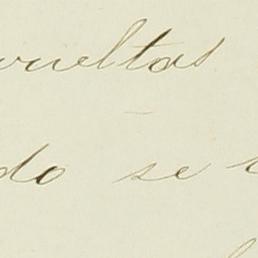 vueltas
do se